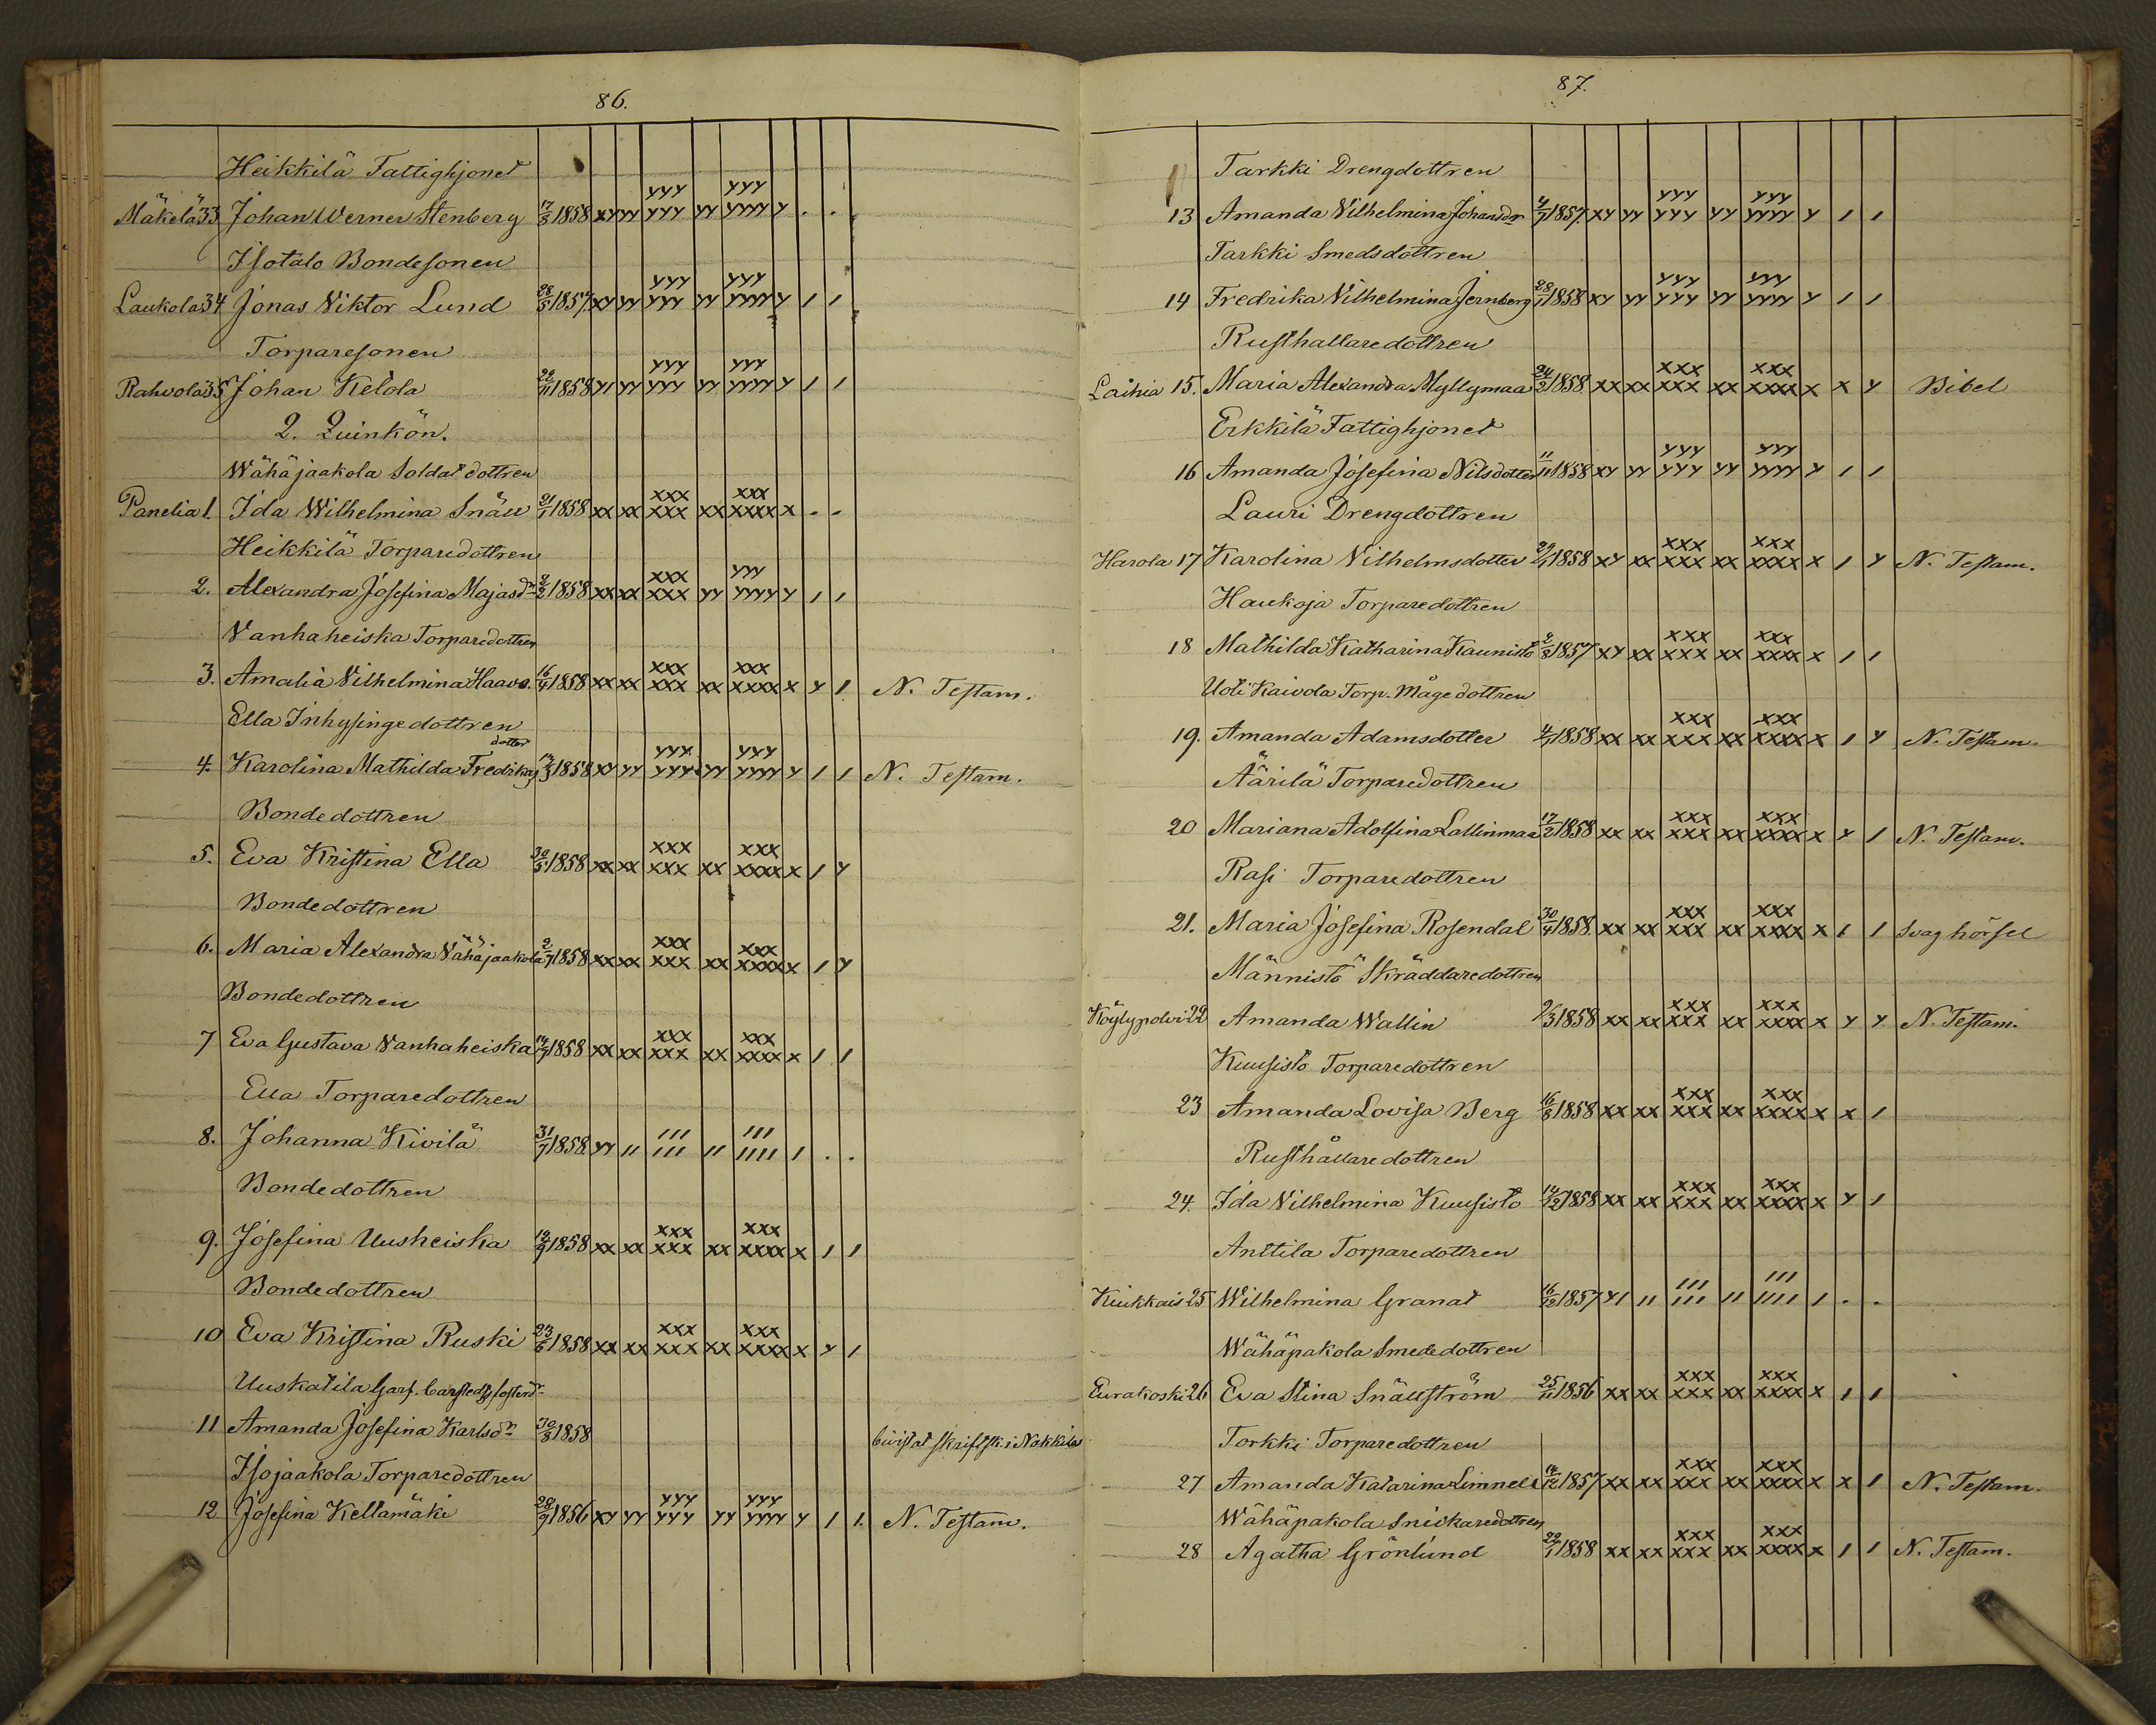 86.
Heikkilä Fattighjonet
Mäkelä 33 Johan Werner Stenberg 17/8 1858 xy yy yyy yyy yy yyy yyyy y . .
Isotalo Bondesonen
Laukola 34 Jonas Viktor Lund 28/5 1857. xy yy yyy yyy yy yyy yyyy y / /
Torparesonen
Rahvola 35 Johan Ketola 22/11 1858 y/ yy yyy yyy yy yyy yyyy y / /
2. Quinkön.
Wähäjaakola Soldatdottren
Panelia 1. Ida Wilhelmina Snäll 21/1 1858 xx xx xxx xxx xx xxx xxxx x . .
Heikkilä Torparedottren
2. Alexandra Josefina Majasdr 2/2 1858 xx xx xxx xxx yy yyy yyyy y / /
Vanhaheiska Torparedottren
3. Amalia Vilhelmina Haavo. 16/4 1858 xx xx xxx xxx xx xxx xxxx x y / N. Testam.
Ella Inhysingedottren
4. Karolina Mathilda Fredrikas dotter 17/3 1858 xy yy yyy yyy yy yyy yyyy y / / N. Testam.
Bondedottren
5. Eva Kristina Ella 30/5 1858 xx xx xxx xxx xx xxx xxxx x / y
Bondedottren
6. Maria Alexandra Vähäjaakola 2/7 1858 xx xx xxx xxx xx xxx xxxx x / y
Bondedottren
7 Eva Gustava Vanhaheiska 14/7 1858 xx xx xxx xxx xx xxx xxxx x / /
Ella Torparedottren
8. Johanna Kivilä 31/7 1858. yy // /// /// // /// //// / . .
Bondedottren
9. Josefina Uusheiska 19/9 1858 xx xx xxx xxx xx xxx xxxx x / /
Bondedottren
10 Eva Kristina Ruski 23/6 1858 xx xx xxx xxx xx xxx xxxx x y /
Uuskatila Garf.
11 Amanda Josefina Karlsdr 30/8 1858 bivistat skriftsk. i Nakkila
Isojaakola Torparedottren
12 Josefina Kellamäki 28/9 1856 xy yy yyy yyy yy yyy yyyy y / /. N. Testam.
87.
Tarkki Drengdottren
13 Amanda Vilhelmina Johansdr 4/7 1857. xy yy yyy yyy yy yyy yyyy y / /
Tarkki Smedsdottren
14 Fredrika Vilhelmina Jernberg 28/1 1858 xy yy yyy yyy yy yyy yyyy y / /
Rusthallaredottren
Laihia 15. Maria Alexandra Myllymaa 24/2 1858 xx xx xxx xxx xx xxx xxxx x x y Bibel
Erkkilä Fattighjonet
16 Amanda Josefina Nilsdotter 11/11 1858 xy yy yyy yyy yy yyy yyyy y / /
Lauri Drengdottren
Harola 17 Karolina Vilhelmsdotter 29/1 1858 xy xx xxx xxx xx xxx xxxx x / y N. Testam.
Haukoja Torparedottren
18 Mathilda Katharina Kaunisto 2/8 1857 xy xx xxx xxx xx xxx xxxx x / /
Uoti Kaivola Torp. Mågedottren
19. Amanda Adamsdotter 4/1 1858 xx xx xxx xxx xx xxx xxxx x / y N. Testam.
Äärilä Torparedottren
20 Mariana Adolfina Lallinmaa 17/2 1858 xx xx xxx xxx xx xxx xxxx x y / N. Testam.
Rasi Torparedottren
21. Maria Josefina Rosendal 30/4 1858. xx xx xxx xxx xx xxx xxxx x / / Svag hörsel
Männistö Skräddaredottren
Köylypolvi 22 Amanda Wallin 2/3 1858 xx xx xxx xxx xx xxx xxxx x y y N. Testam.
Kuusisto Torparedottren
23 Amanda Lovisa Berg 16/8 1858 xx xx xxx xxx xx xxx xxxx x x /
Rusthållaredottren
24. Ida Vilhelmina Kuusisto 14/12 1858 xx xx xxx xxx xx xxx xxxx x y /
Anttila Torparedottren
Kiukkais 25 Wilhelmina Granat 16/12 1857 y/ // /// /// // /// //// / . .
Wähäpakola Smededottren
Eurakoski 26 Eva Stina Snällström 25/11 1856 xx xx xxx xxx xx xxx xxxx x / /
Torkki Torparedottren
27 Amanda Katarina Limnell 14/12 1857 xx xx xxx xxx xx xxx xxxx x x / N. Testam.
Wähäpakola Snickaredottren
28 Agatha Grönlund 22/1 1858 xx xx xxx xxx xx xxx xxxx x / / N. Testam.